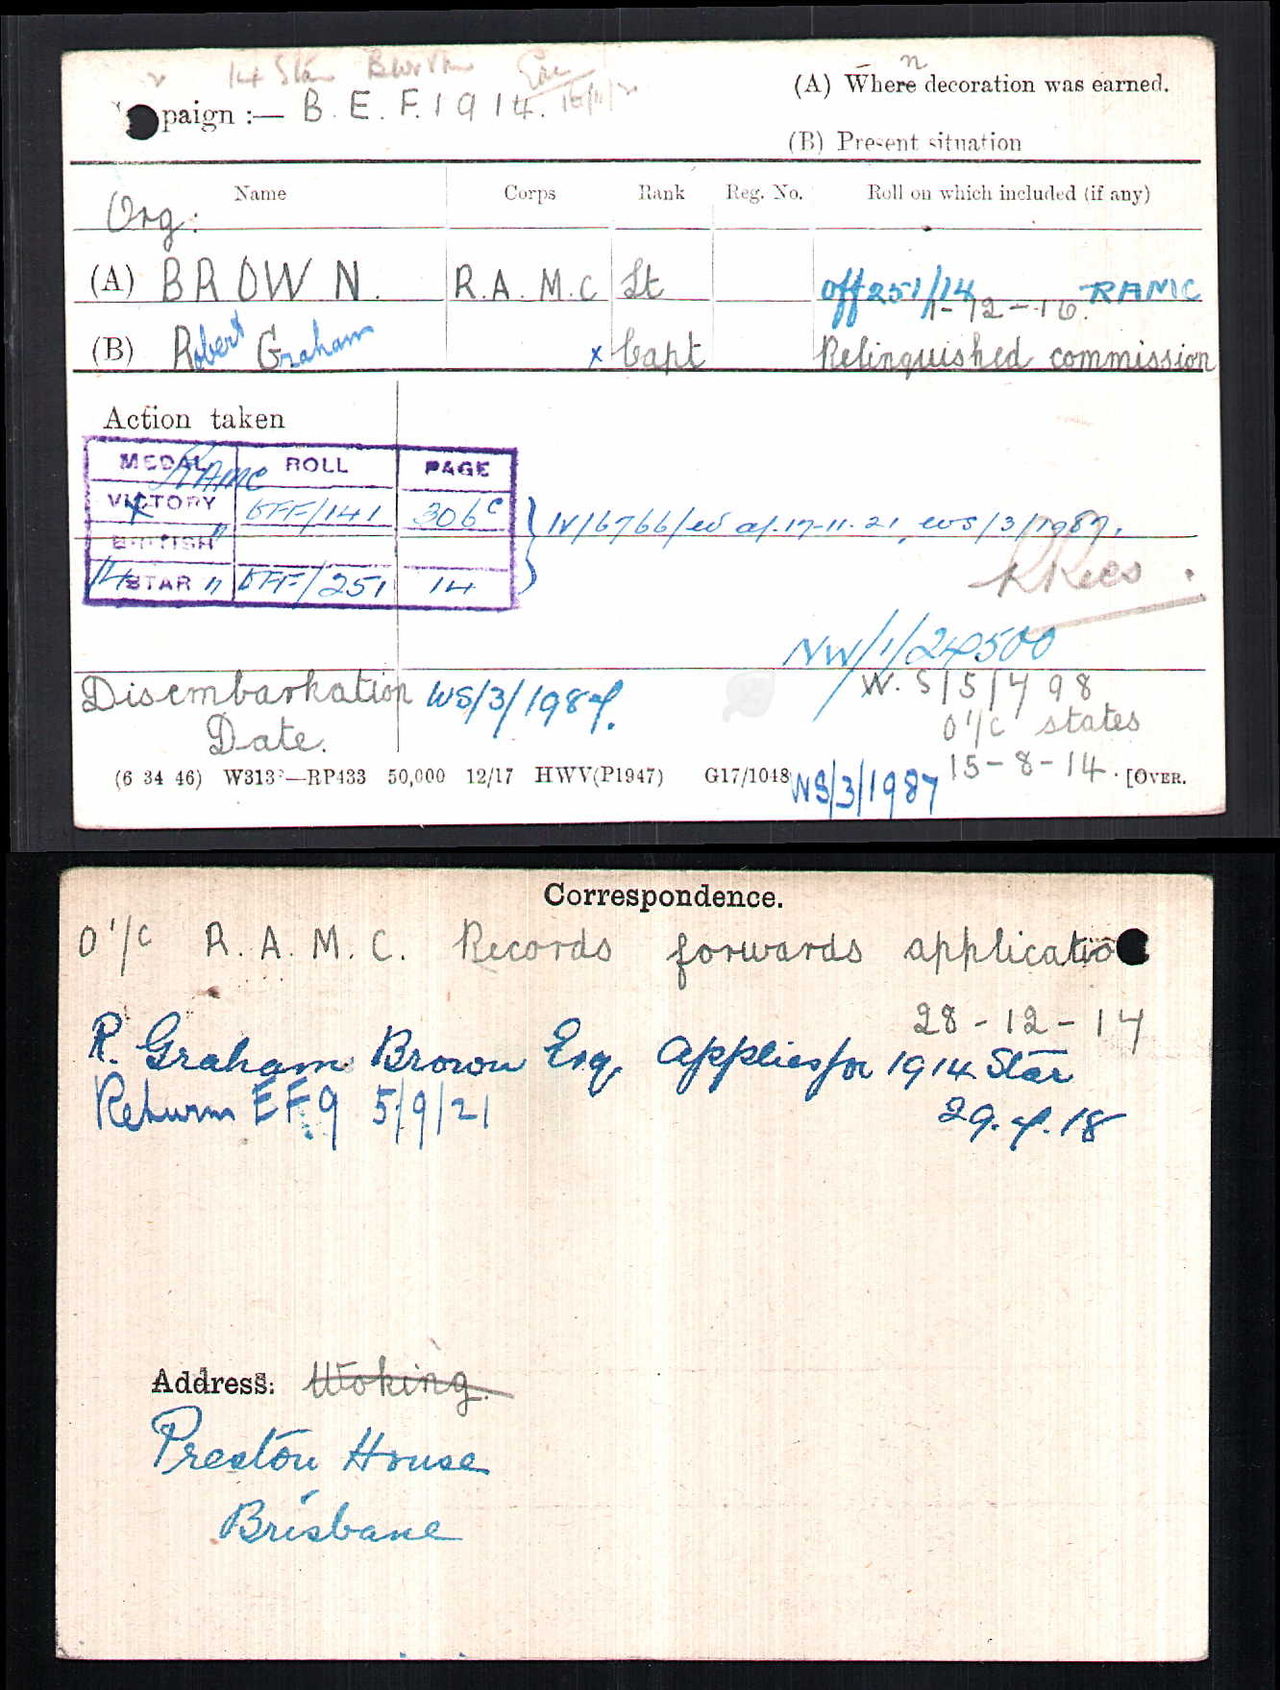 14 Star
(A) Where decoration was earned.
n
paign :— B. E. F. 1914.
(B) Present situation
Name Corps Rank Reg. No. Roll on which included (if any)
Org:
(A) BROWN. R.A.M.C Lt Off 251/14 RAMC
1-12-16.
(B) Robert Graham x Capt Relinquished commission
Action taken
MEDAL ROLL PAGE
RAMC
VICTORY OFF/141 306c
BRITISH "
14 STAR " OFF/251 14
IV/6766/ 17-11-21, WS/3/1987.
NW/1/24500
Disembarkation WS/3/1987.
W. S/5/498
Date.
O'/c states
15-8-14.
(6 34 46) W313—RP433 50,000 12/17 HWV(P1947) G17/1048 [OVER.
WS/3/1987
Correspondence.
O'/c R.A.M.C. Records forwards applicatio
28-12-17
R. Graham Brown Esq. applies for 1914 Star
29.4.18
Return EF9 5/9/21
Address: Woking.
Preston House
Brisbane